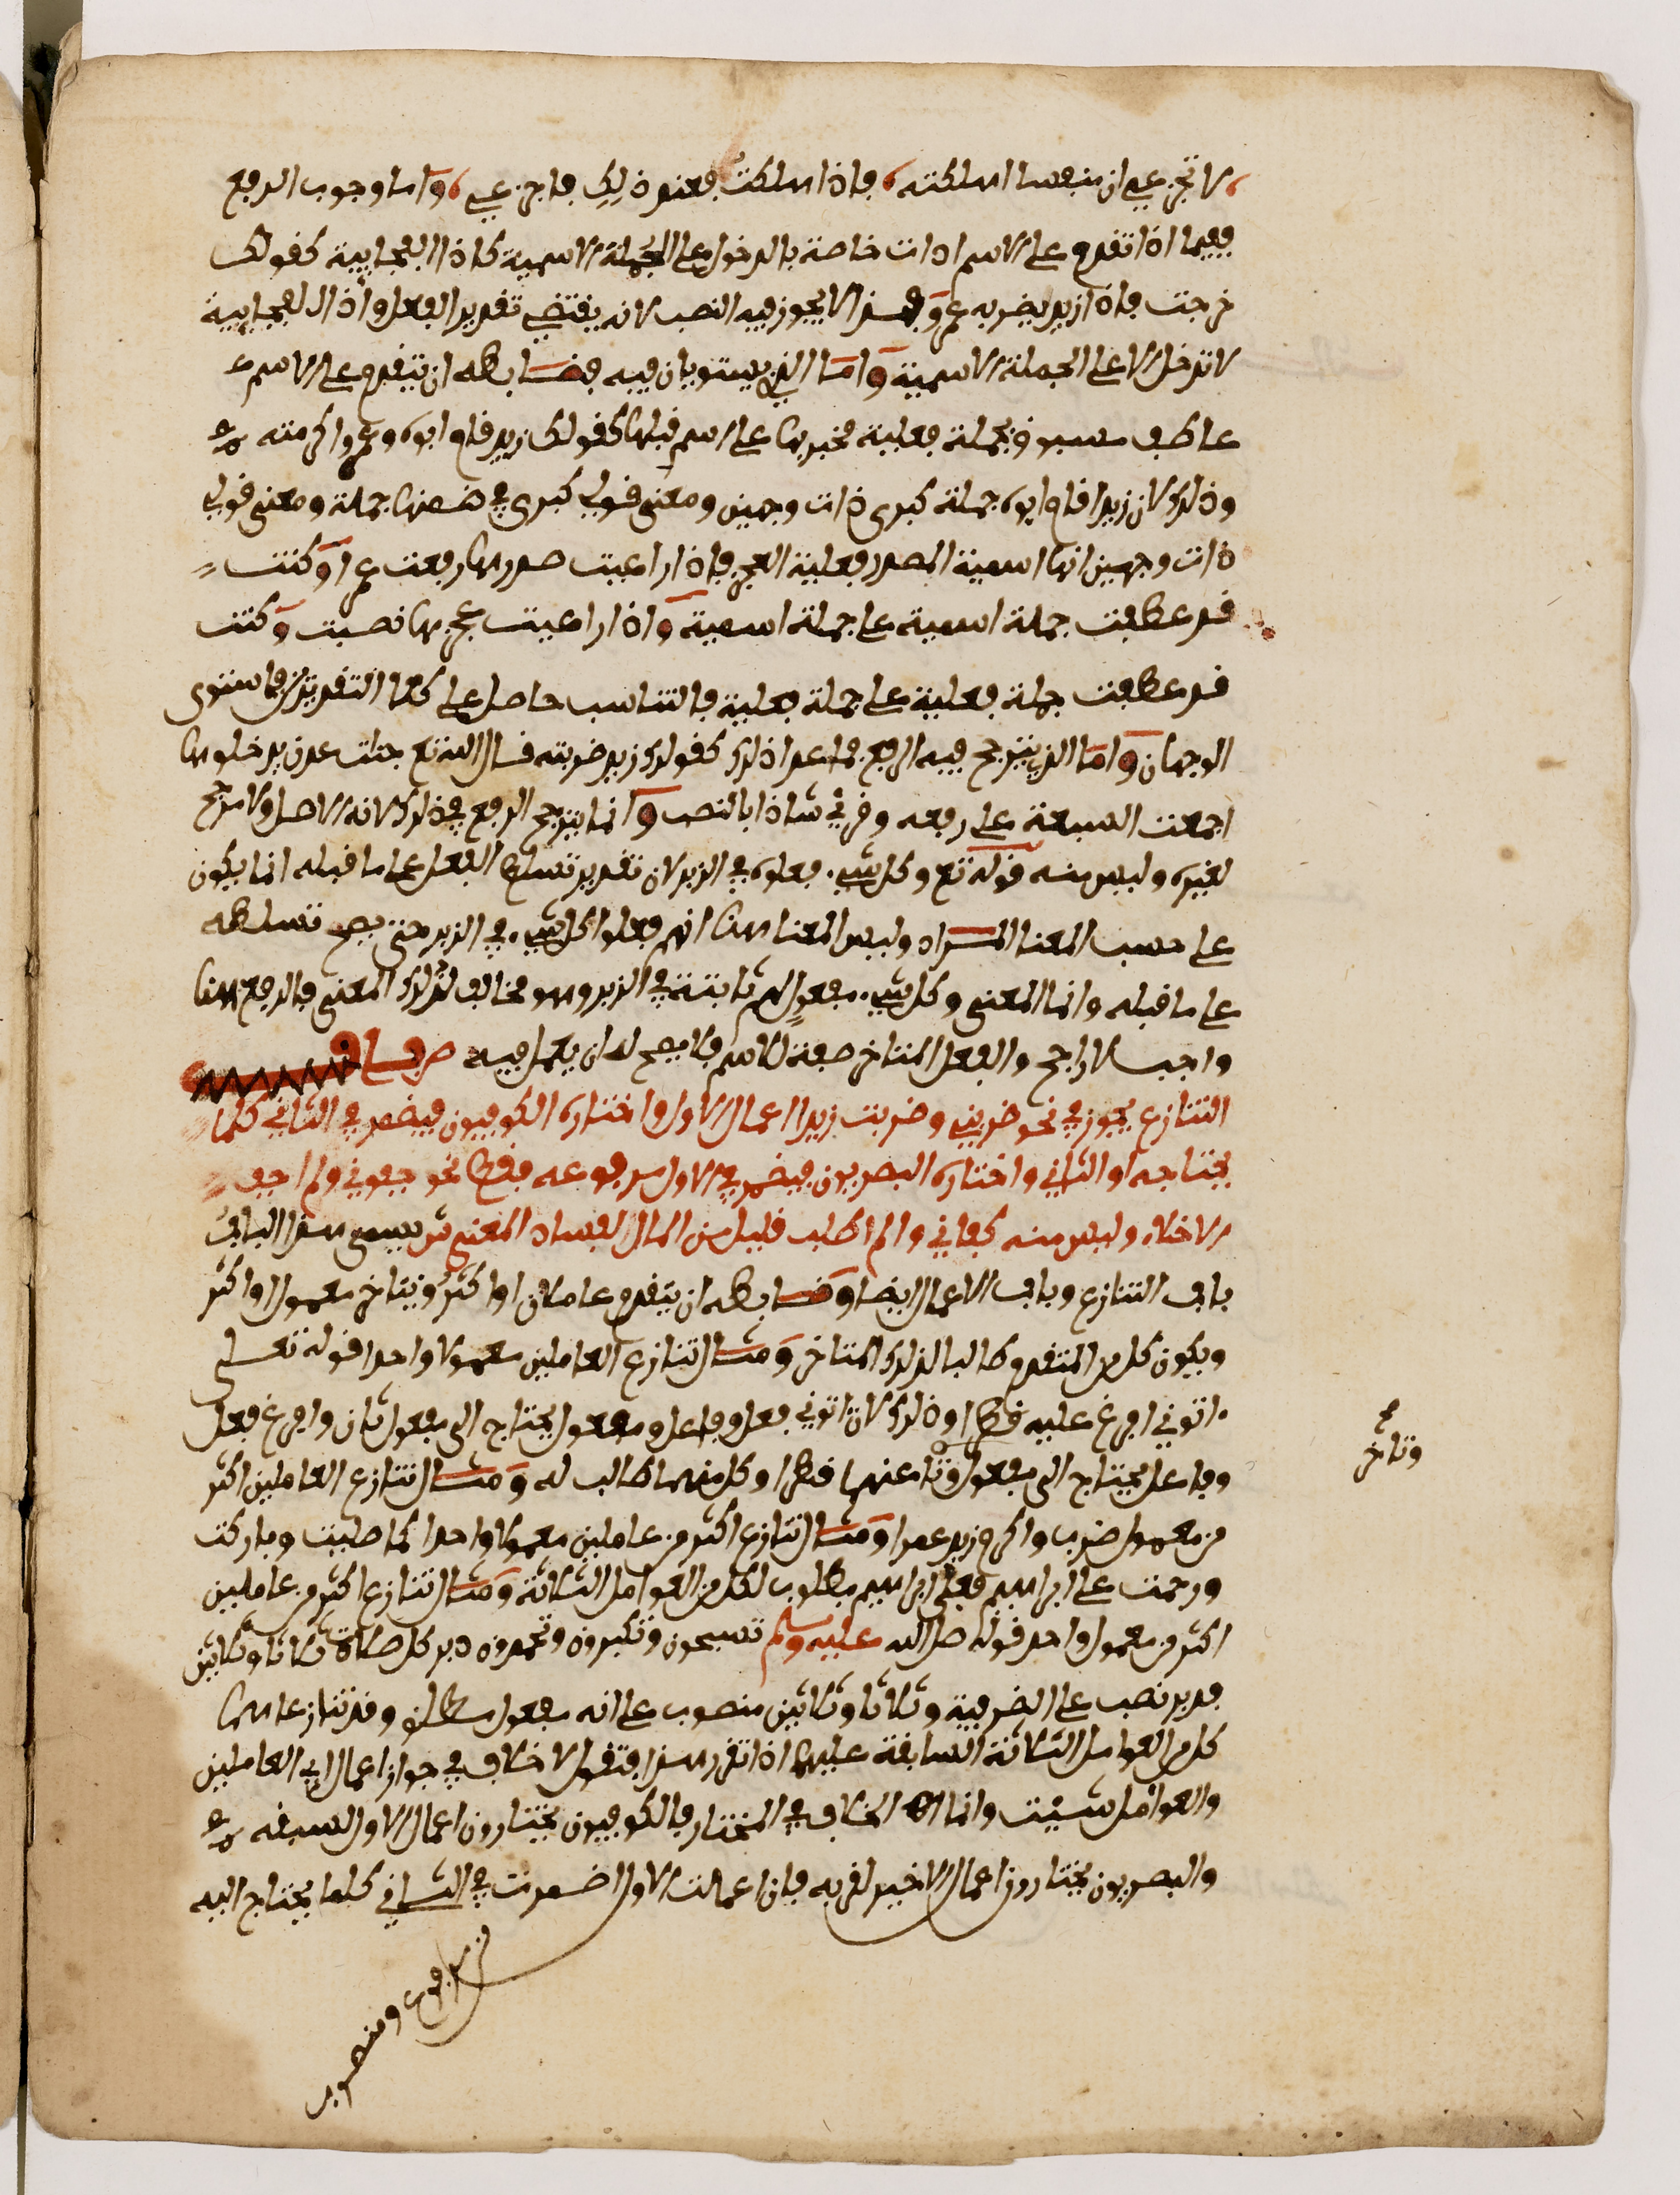 لا تجزعي ان منفسا اهلكته، فاذا هلكت فعند ذلك فاجزعي، واما وجوب الرفع
ففيما اذا تقدم على الاسم ادات خاصة بالدخول على الجملة الاسمية كاذا الفجايية كقولك
خرجت فاذا زيد يضربه عمرو فهذا لا يجوز فيه النصب لانه يقتضي تقدير الفعل واذا الفجايية
لا تدخل الا على الجملة الاسمية واما الذي يستويان فيه فضابطه ان يتقدم على الاسم
عاطف مسبوق بجملة فعلية مخبر بها على اسم قبلها كقولك زيد قام ابوه وعمرو اكرمته
وذلك لان زيدا قام ابوه جملة كبرى ذات وجهين ومعنى قولي كبرى في ضمنها جملة ومعنى قولي
ذات وجهين انها اسمية الصدر فعلية العجز فاذا راعيت صدرها رفعت عمرا وكنت
قد عطفت جملة اسمية على جملة اسمية واذا راعيت عجزها نصبت وكنت
قد عطفت جملة فعلية على جملة فعلية فالتناسب حاصل على كلا التقديرين فاستوى
الوجهان واما الذي يترجح فيه الرفع فما عدا ذلك كقولك زيد ضربته قال الله تع جنات عدن يدخلونها
اجمعت السبعة على رفعه وقرئ شاذا بالنصب وانما يترجح الرفع في ذلك لانه الاصل ولا مرجح
لغيره وليس منه قوله تع وكل شيء فعلوه في الزبر لان تقدير تسليط الفعل على ما قبله انما يكون
على حسب المعنا المراد وليس المعنا هنا انهم فعلوا كل شيء في الزبر حتى يصح تسلطه
على ما قبله وانما المعنى وكل شيء مفعول لهم ثابتة في الزبر وهو مخالف لذلك المعنى فالرفع هنا
واجب لا راجح والفعل المتاخر صفة للاسم فلا يصح له ان يعمل فيه ص باب
التنازع يجوز في نحو ضربني وضربت زيدا اعمال الاول واختاره الكوفيون فيضمر في الثاني كلما
يحتاجه او الثاني واختاره البصريون فيضمر في الاول مرفوعه فقط نحو جفوني ولم اجف
الاخلاء وليس منه كفاني ولم اطلب قليل من المال لفساد المعنى ش يسمى هذا الباب
باب التنازع وباب الاعمال ايضا وضابطه ان يتقدم عاملان او اكثر ويتاخر معمول او اكثر
ويكون كل من المتقدم طالبا لذلك المتاخر ومثال تنازع العاملين معمولا واحدا قوله تعلى
اتوني افرغ عليه قطرا وذلك لان اتوني فعل وفاعل ومفعول يحتاج الى مفعول ثان وافرغ فعل
وفاعل يحتاج الى مفعول وتاخر عنهما قطرا وكل منهما طالب له ومثال تنازع العاملين اكثر
من معمول ضرب واكرم زيد عمرا ومثال تنازع اكثر من عاملين معمولا واحدا كما صليت وباركت
ورحمت على ابراهيم فعلى ابراهيم مطلوب لكل من العوامل الثلاثة ومثال تنازع اكثر من عاملين
اكثر من معمول واحد قوله صلى الله عليه وسلم تسبحون وتكبرون وتحمدون دبر كل صلاة ثلاثا وثلاثين
فدبر نصب على الضرفية وثلاثا وثلاثين منصوب على انه مفعول مطلق وقد تنازعاهما
كل من العوامل الثلاثة السابقة عليهما اذا تقرر هذا فنقول لا خلاف في جواز اعمال اي العاملين
والعوامل شيت وانما الخلاف في المختار فالكوفيون يختارون اعمال الاول لسبقه
والبصريون يختارون اعمال الاخير لقربه فان اعملت الاول اضمرت في الثاني كلما يحتاج اليه
ومنصوب
وتاخر